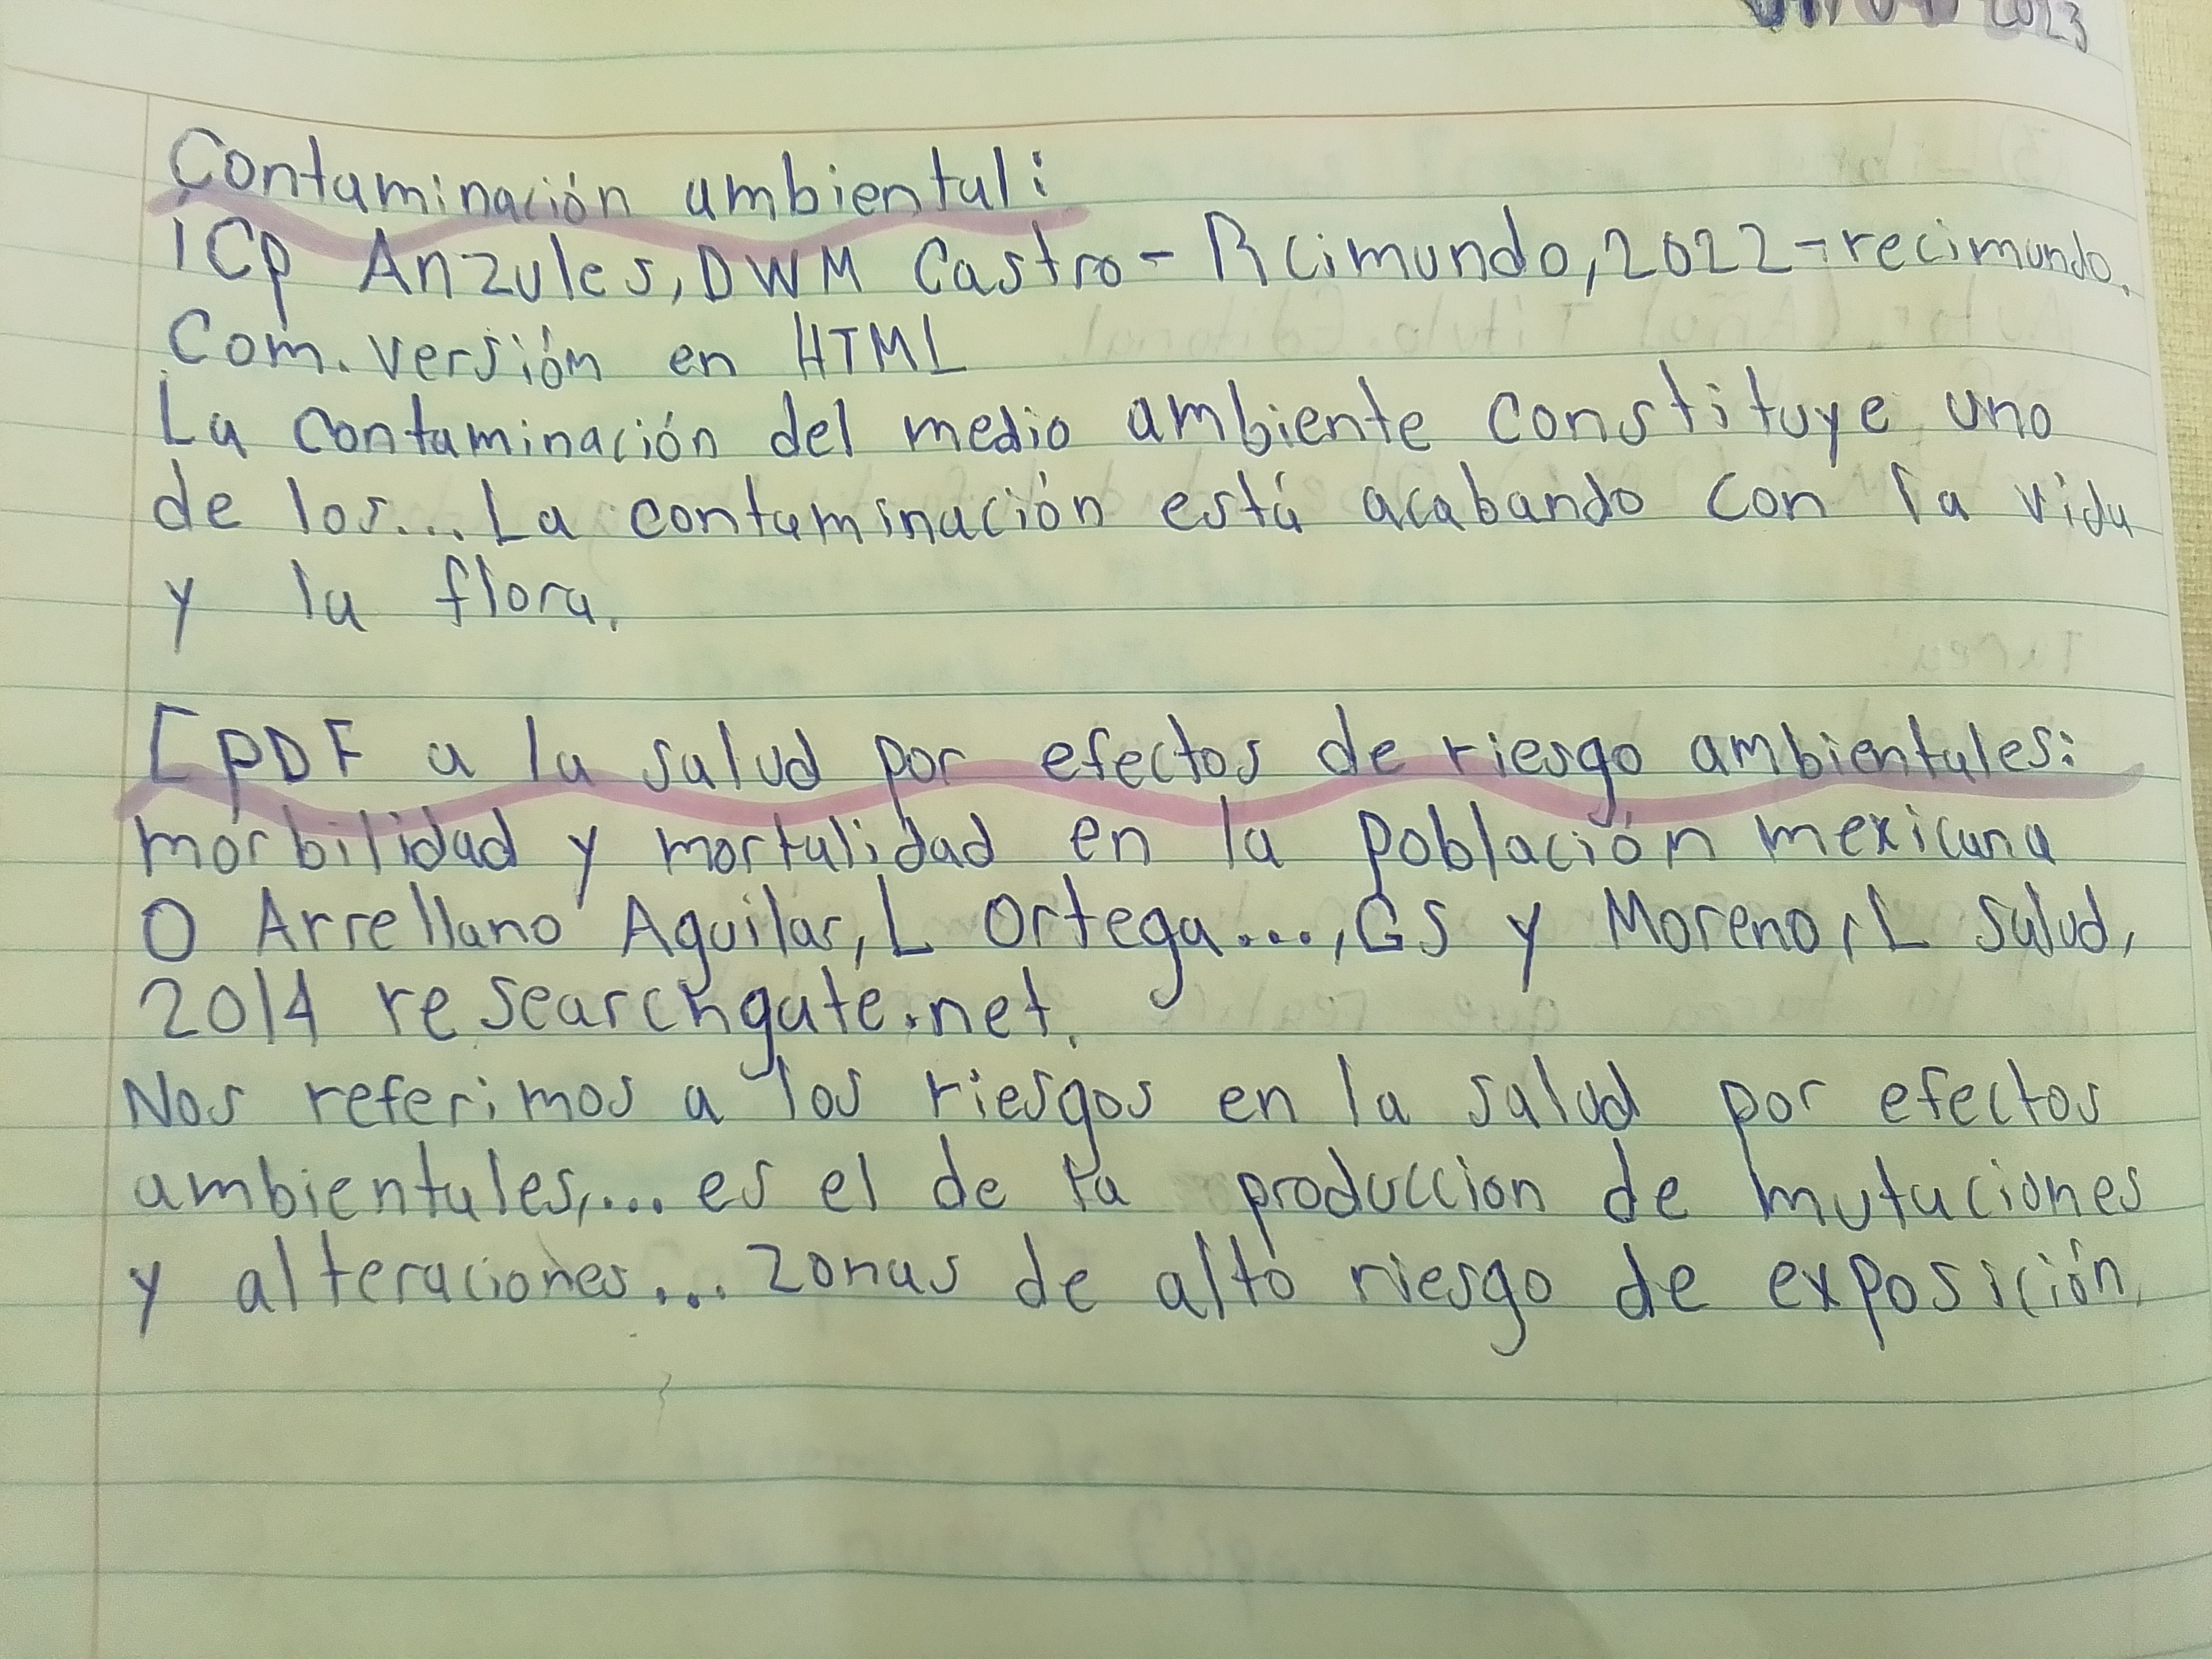 2023
Contaminación ambiental:
ICp Anzules, DWM Castro - Rcimundo, 2022 - recimundo.
Com. versión en HTML
La contaminación del medio ambiente constituye uno
de los... La contaminación está acabando con la vida
y la flora.
[PDF a la salud por efectos de riesgo ambientales:
morbilidad y mortalidad en la población mexicana
O Arrellano Aguilar, L Ortega..., GS y Moreno, L salud,
2014 researchgate.net.
Nos referimos a los riesgos en la salud por efectos
ambientales,... es el de la produccion de mutaciones
y alteraciones... zonas de alto riesgo de exposición.